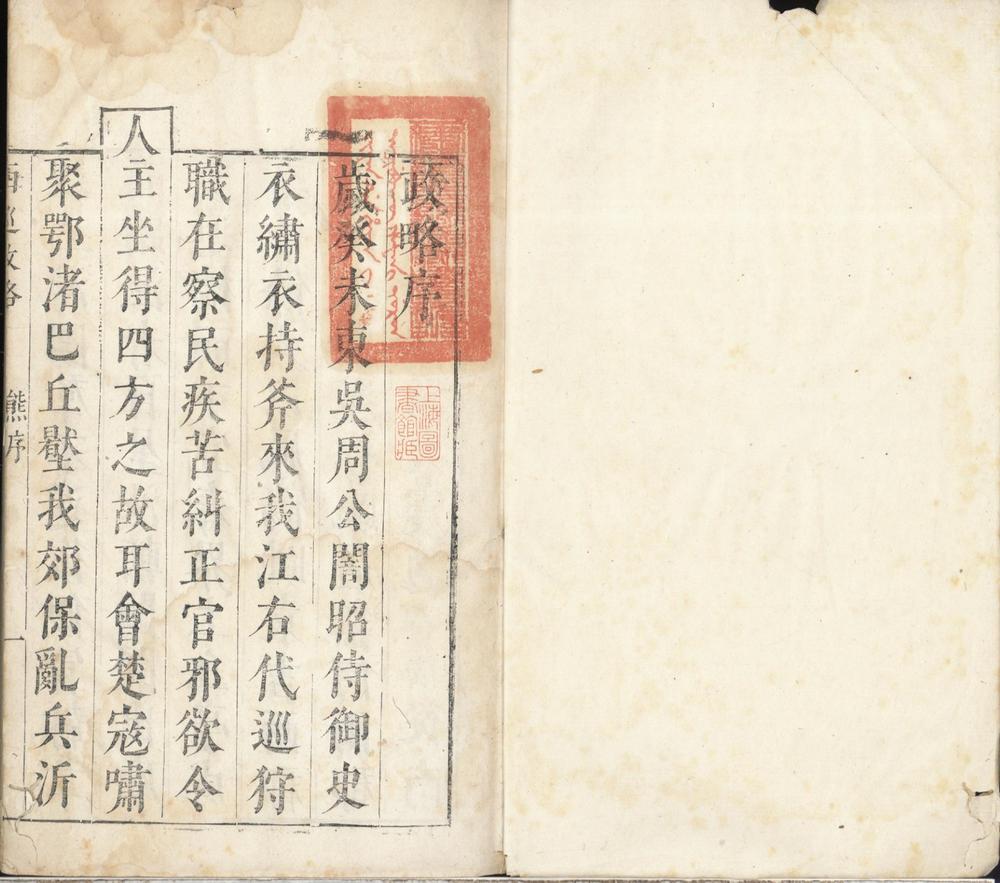 政略序
歲癸未東吳周公闇昭侍御史
衣繡衣持斧來我江右代巡狩
職在察民疾苦糾正官邪欲令
人主坐得四方之故耳會楚寇嘯
聚鄂渚巴丘壂我郊保亂兵沂
熊序
一
上海圖
書館藏